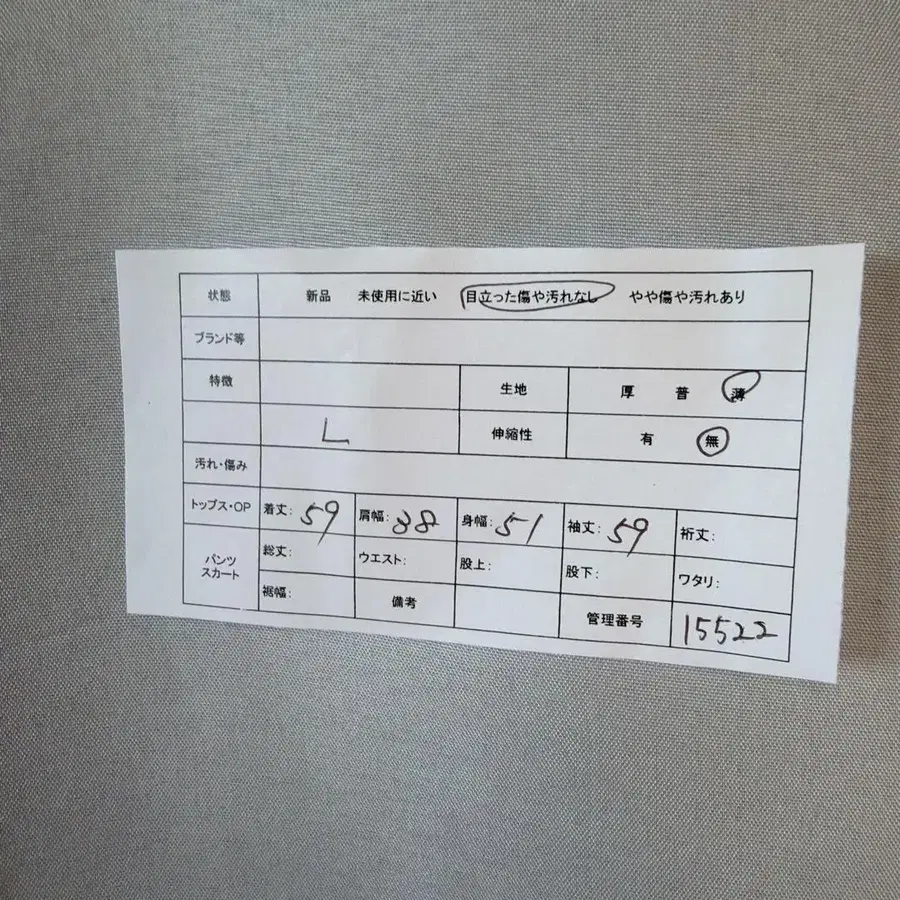 状態 新品 未使用に近い 目立った傷や汚れなし やや傷や汚れあり
ブランド等
特徴 生地 厚 普 薄
L 伸縮性 有 無
汚れ・傷み
トップス・OP 着丈: 59 肩幅: 38 身幅: 51 袖丈: 59 裄丈:
パンツ
スカート
総丈: ウエスト: 股上: 股下: ワタリ:
裾幅: 備考 管理番号 15522